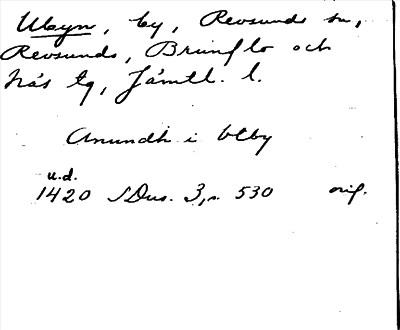 Ulvyn, by, Revsunds sn,
Revsunds, Brunflo och
Näs tg, Jämtl. l.
Anundh i Vlby
u.d.
1420 SDns. 3, s. 530 orig.